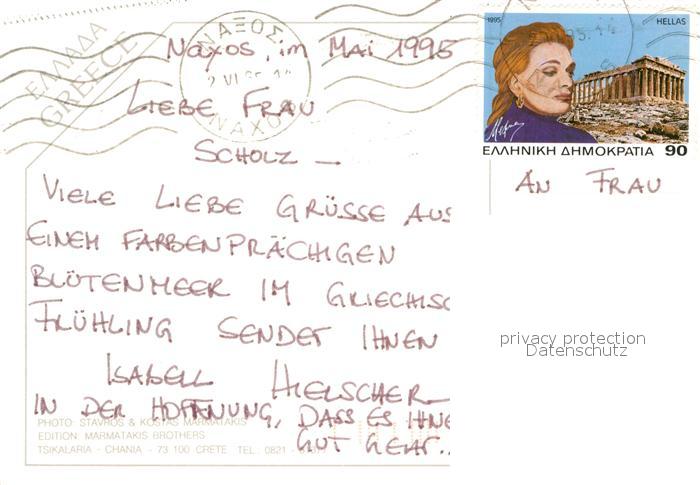 ΕΛΛΑΔΑ
GREECE
ΝΑΞΟΣ
ΝΑΧΟ
1995
HELLAS
ΕΛΛΗΝΙΚΗ ΔΗΜΟΚΡΑΤΙΑ 90
NAXOS, IM MAI 1995
LIEBE FRAU
SCHOLZ –
VIELE LIEBE GRÜSSE AUS
EINEM FARBENPRÄCHIGEN
BLÜTENMEER IM GRIECHISC
FRÜHLING SENDET IHNEN
ISABELL HIELSCHER
IN DER HOFFNUNG, DASS ES IHNE
GUT GEHT..
AN FRAU
privacy protection
Datenschutz
PHOTO: STAVROS & KOSTAS MARMATAKIS
EDITION: MARMATAKIS BROTHERS
TSIKALARIA - CHANIA - 73 100 CRETE TEL.: 0821 -